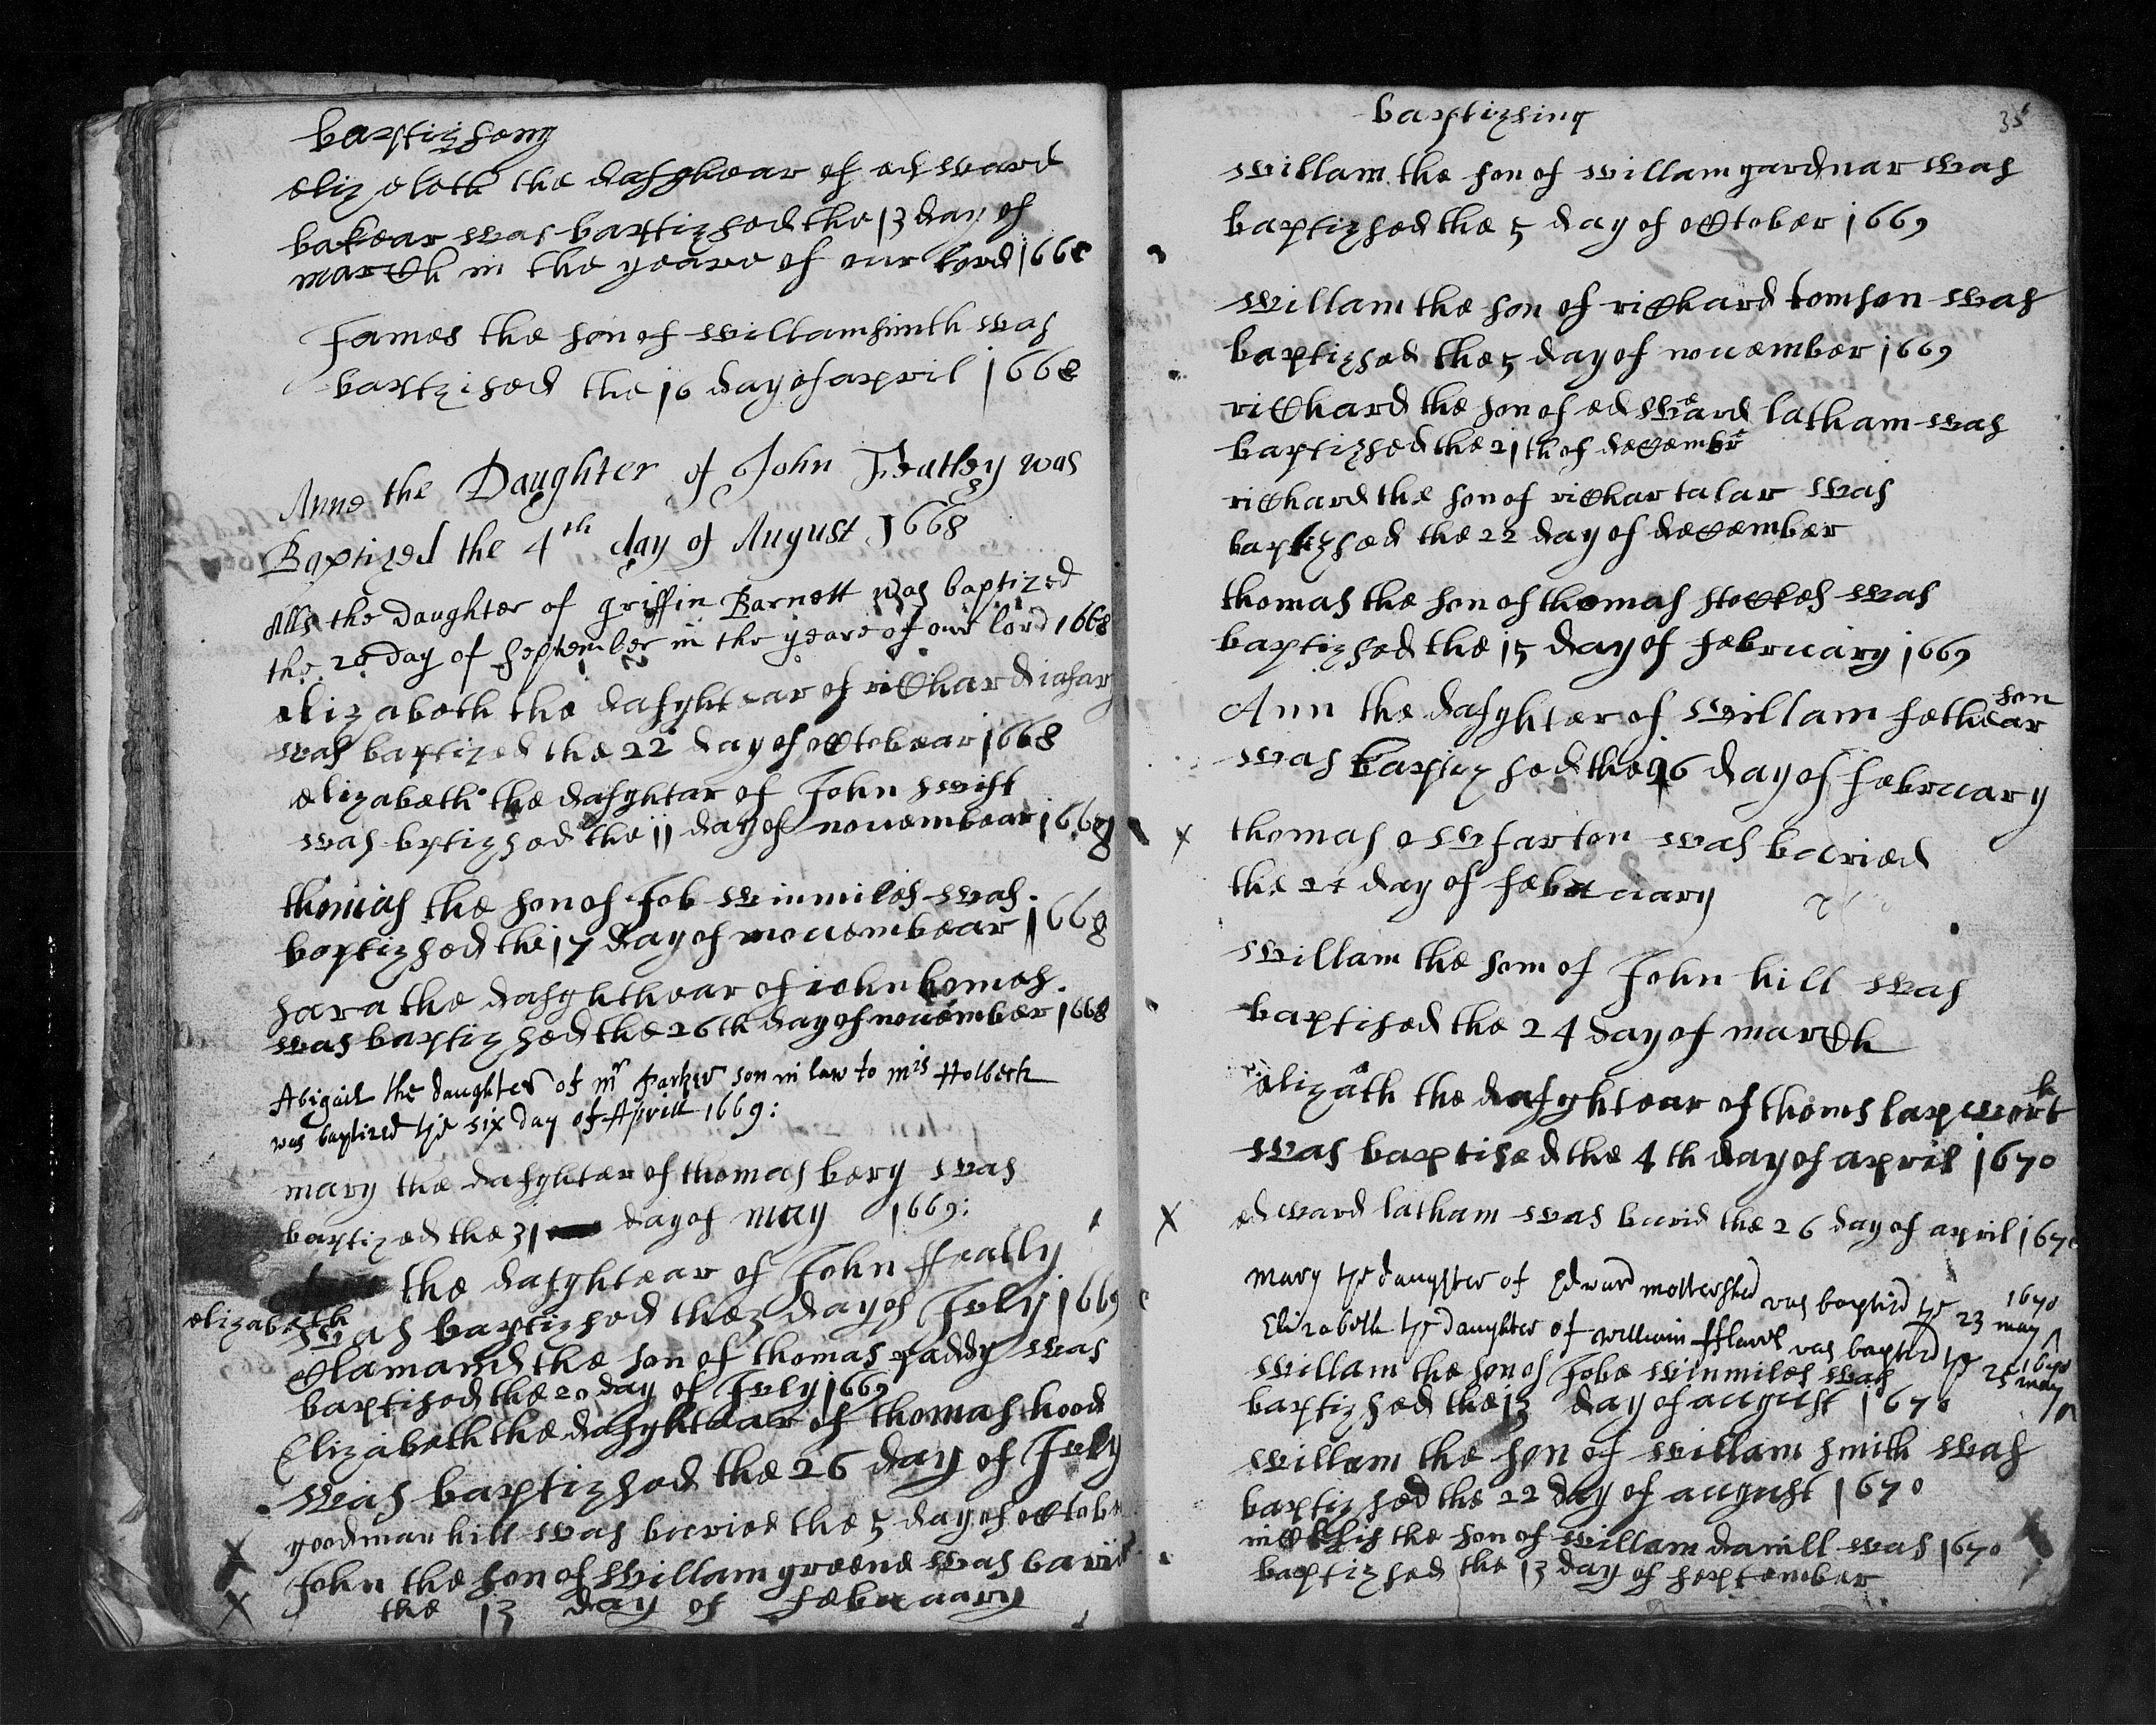 baptizseng
elizebeth the dasghear of edward
bakear was baptizsed the 13 day of
march in the yeare of our lord 1668
James the son of willam smith was
baptzised the 16 day of april 1668
Anne the Daughter of John Featley was
Baptized the 4th day of August 1668
Alls the daughter of griffin Barnett was baptized
the 20 day of september in the yeare of our lord 1668
elizabeth the dasghtear of richar
was baptized the 22 day of octobear 1668
elizabeth the dasghtar of John swift
was bptizsed the 11 day of nouembear 1668
thomas the son of Job winmiles was
baptizsed the 17 day of nouembear 1668
sara the dasghthear of iohn homes
was baptizsed the 26th day of nouember 1668
Abigail the daughter of mr Parker son in law to mis Holbeck
was baptized the six day of Aprill 1669:
mary the dasghter of thomas bery was
baptized the 31 day of may 1669:
the dasghtear of John ffeatly
elizabeth was baptizsed the 3 day of July 1669
clamand the son of thomas gaddy was
baptised the 20 day of July 1669
Elizabeth the dasghtear of thomas hood
was baptizsed the 26 day of July
goodman hill was buried the 5 day of octobe
John the son of willam greene was burid
the 13 day of febuary
baptizsing
35
willam the son of willam gardnar was
baptizsed the 5 day of october 1669
willam the son of richard tomson was
baptizsed the 5 day of nouember 1669
richard the son of edweard latham was
baptizsed the 21th of decembr
richard the son of richar talar was
baptizsed the 22 day of december
thomas the son of thomas stockes was
baptizsed the 15 day of february 1669
son
Ann the dasghter of willam fethear
was baptizsed the 16 day of february
x thomas owfarton was buried
the 24 day of febuary
willam the som of John hill was
baptised the 24 day of march
elizaeth the dasghtear of thoms lapworth
was baptised the 4th day of april 1670
x edward latham was burid the 26 day of april 1670
mary the daughter of Edward mottershed was baptised the 23 may 1670
Elizabeth the daughter of william fflavel was baptsed the 25 may 1670
willam the son of Jobe winmiles was
baptizsed the 13 day of august 1670
willam the son of willam smith was
baptizsed the 22 day of august 1670
the son of willam darill was 1670
baptizsed the 13 day of september